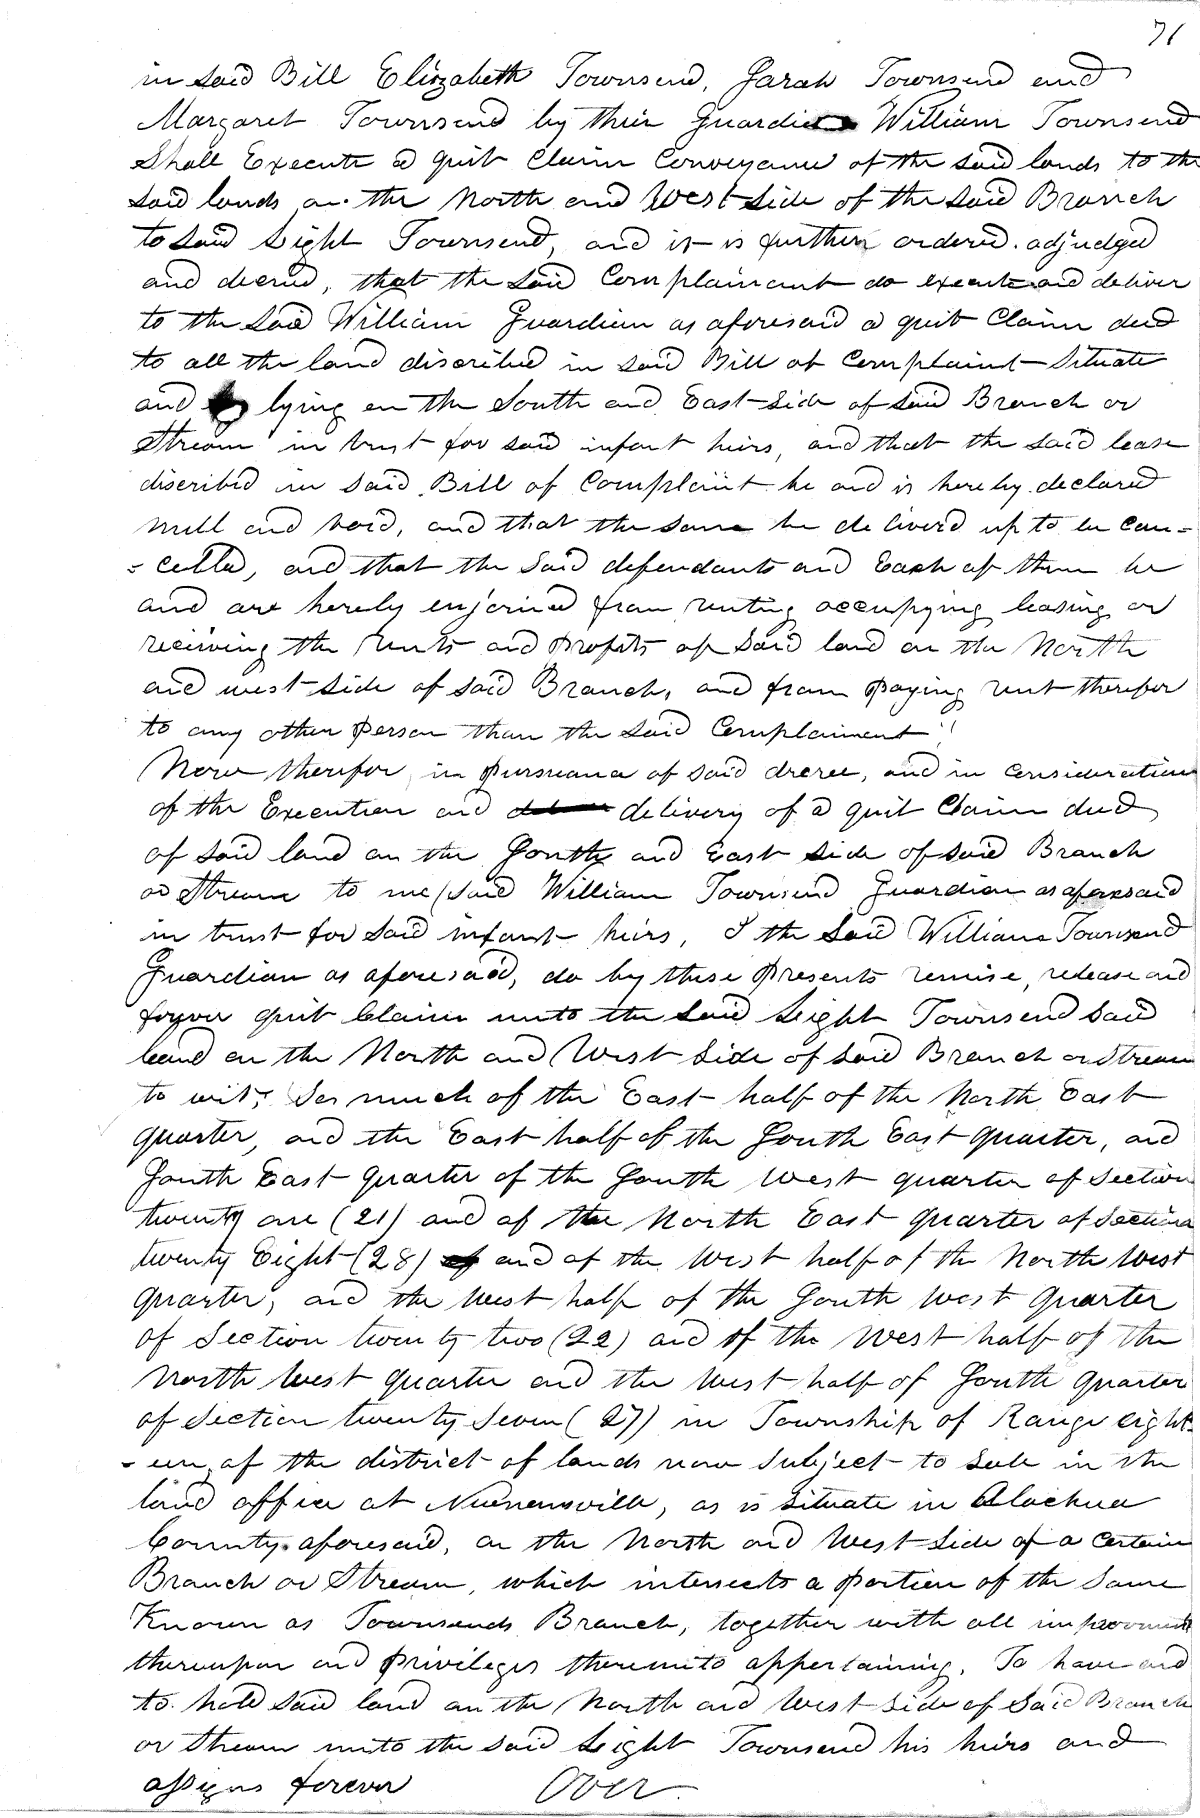 71
in said Bill Elizabeth Townsend, Sarah Townsend and
Margaret Townsend by their Guardian William Townsend
Shall Execute a quit Claim Conveyance of the said lands to the
said lands on the North and West side of the said Branch
to said Light Townsend, and it is further ordered. adjudged
and decreed, that the said Complainant do execute and deliver
to the said William Guardian as aforesaid a quit Claim deed
to all the land discribed in said Bill of Complaint Situate
and lying on the South and East side of said Branch or
Stream in trust for said infant heirs, and that the said lease
discribed in said Bill of Complaint be and is hereby declared
null and void, and that the same be deliverd up to be can-
- celled, and that the said defendants and Each of them be
and are hereby enjoined from renting occupying leasing or
receiving the rents and profits of said land on the North
and west side of said Branch, and from paying rent therefor
to any other person than the said Complainant"
Now therefor, in pursuance of said decree, and in consideration
of the Execution and delivery of a quit Claim deed
of said land on the South and East side of said Branch
or Stream to me (said William Townsend Guardian as aforesaid
in trust for said infant heirs, I the said William Townsend
Guardian as aforesaid, do by these presents remise, release and
forever quit Claim unto the said Light Townsend said
land on the North and West side of said Branch or Stream
to wit; So much of the East half of the North East
quarter, and the East half of the South East quarter, and
South East quarter of the South West quarter of section
twenty one (21) and of the North East quarter of section
twenty Eight (28) and of the West half of the North West
quarter, and the West half of the South West quarter
of Section twenty two (22) and of the West half of the
North West quarter and the West half of South quarter
of Section twenty Seven (27) in Township of Range eight-
- een of the district of lands now subject to sale in the
land office at Newnansville, as is situate in Alachua
County aforesaid, on the North and West side of a certain
Branch or Stream, which intersects a portion of the same
Known as Townsends Branch, together with all improvements
thereupon and privileges thereunto appertaining. To have and
to hold said land on the North and West side of said Branch
or Stream unto the said Light Townsend his heirs and
assigns forever Over